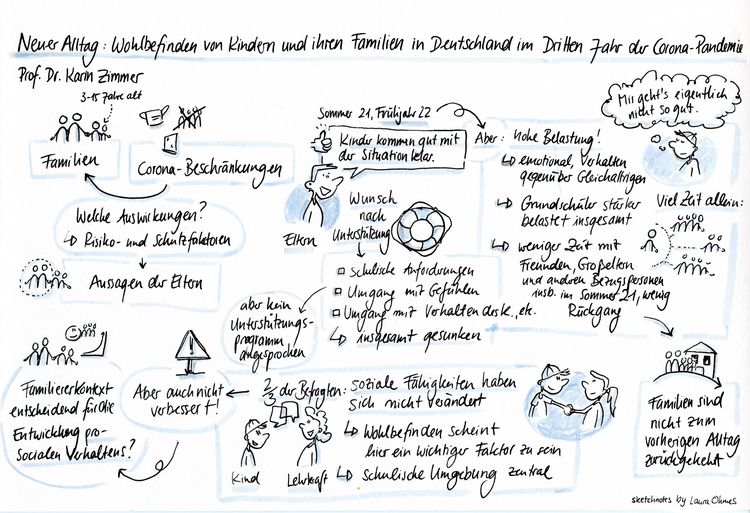 Neuer Alltag: Wohlbefinden von Kindern und ihren Familien in Deutschland im Dritten Jahr der Corona-Pandemie
Prof. Dr. Karin Zimmer
3-15 Jahre alt
Familien
Corona-Beschränkungen
Welche Auswirkungen?
↳ Risiko- und Schutzfaktoren
Aussagen der Eltern
Sommer 21, Frühjahr 22
Kinder kommen gut mit
der Situation klar.
Eltern
Wunsch
nach
Unterstützung
Schulische Anforderungen
Umgang mit Gefühlen
Umgang mit Verhalten des K., etc.
↳ insgesamt gesunken
aber kein
Unterstützungs-
programm
angesprochen
Aber: hohe Belastung!
↳ emotional, Verhalten
gegenüber Gleichaltrigen
↳ Grundschüler stärker
belastet insgesamt
↳ weniger Zeit mit
Freunden, Großeltern
und anderen Bezugspersonen
insb. im Sommer 21, wenig
Rückgang
Mir geht's eigentlich
nicht so gut.
Viel Zeit allein:
Familien sind
nicht zum
vorherigen Alltag
zurückgekehrt
2/3 der Befragten: soziale Fähigkeiten haben
sich nicht verändert
↳ Wohlbefinden scheint
hier ein wichtiger Faktor zu sein
↳ Schulische Umgebung zentral
Kind
Lehrkraft
Aber auch nicht
verbessert!
Familienkontext
entscheidend für die
Entwicklung pro-
sozialen Verhaltens?
sketchnotes by Laura Ohmes